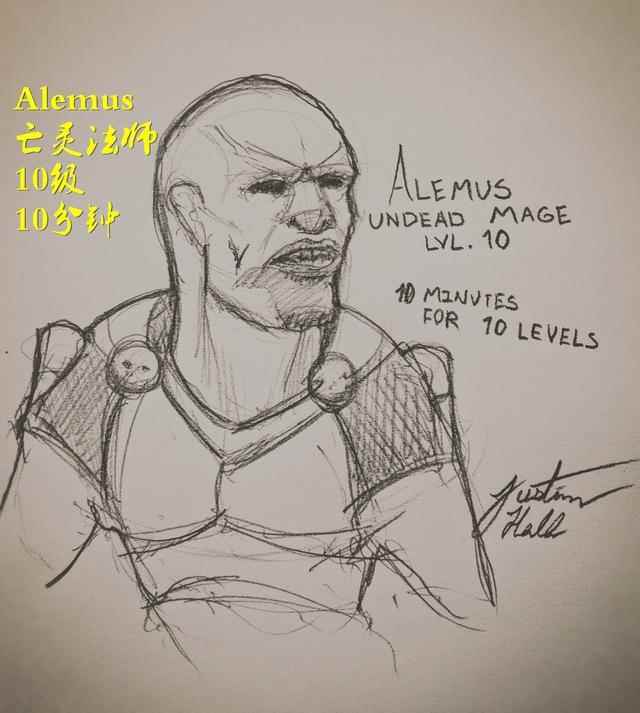 Alemus
亡灵法师
10级
10分钟
ALEMUS
UNDEAD MAGE
LVL. 10
10 MINUTES
FOR 10 LEVELS
Justin
Hald